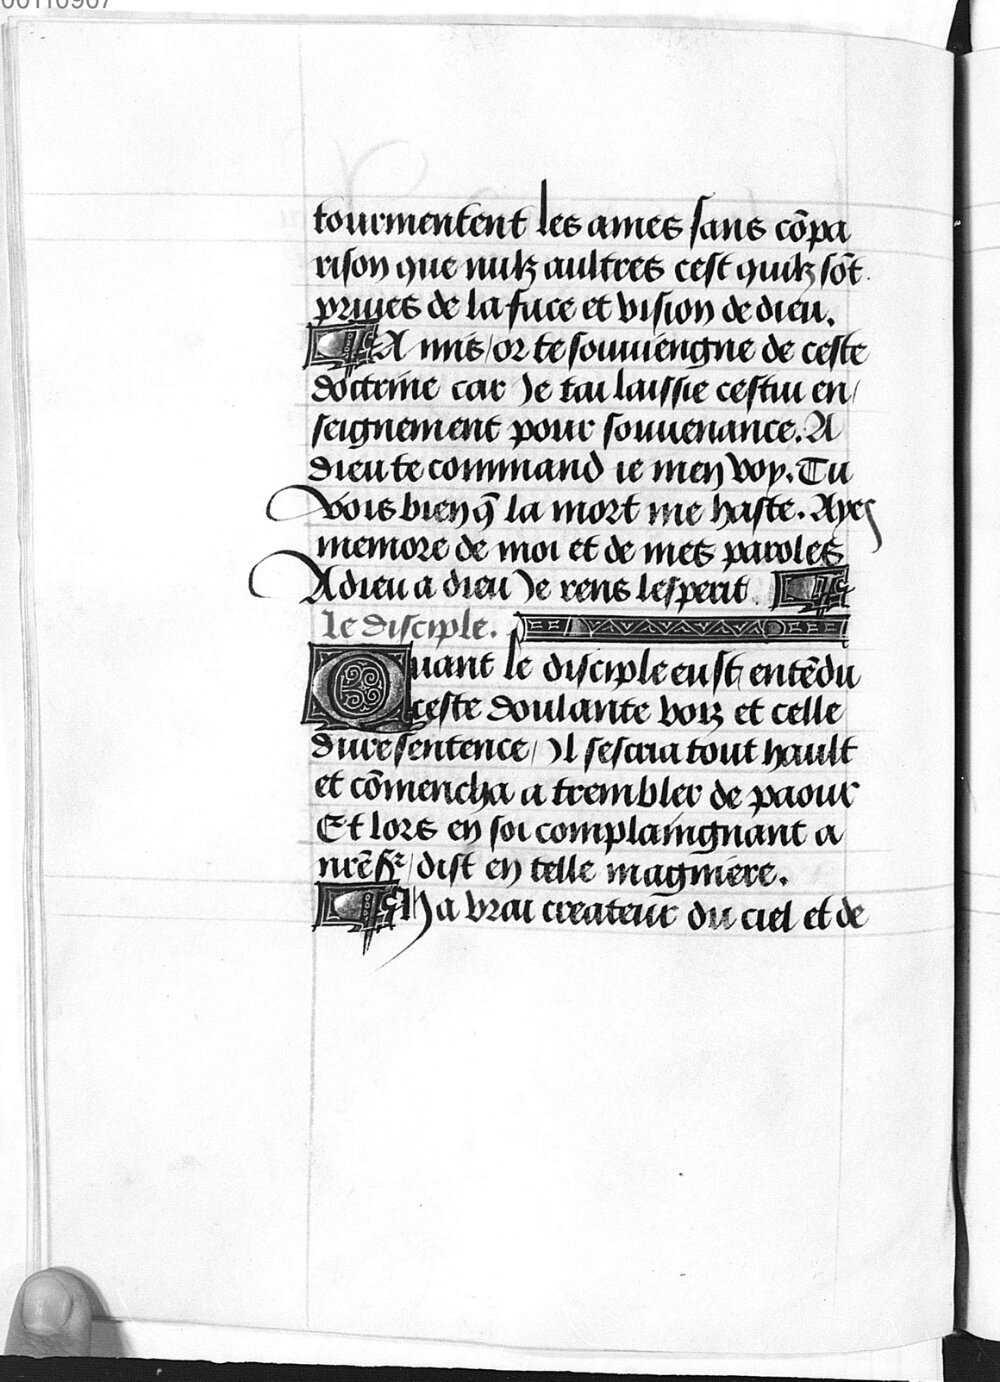 00110907
tourmentent les ames sans cõpa
rison que nulz aultres cest quilz sõt
priues de la face et vision de dieu.
A mis / or te souuiengne de ceste
doctrine car Je tai laissie cestui en/
seignement pour souuenance. A
dieu te command ie men voy. Tu
vois bien q̃ la mort me haste. Ayes
memore de moi et de mes paroles
A dieu a dieu Je rens lesperit.
le disciple.
Quant le disciple eust entẽdu
ceste doulante voix et celle
dure sentence / Il sescria tout hault
et cõmencha a trembler de paour
Et lors en soi complaingnant a
nrẽ sr̃ / dist en telle magniere.
Ha vrai createur du ciel et de